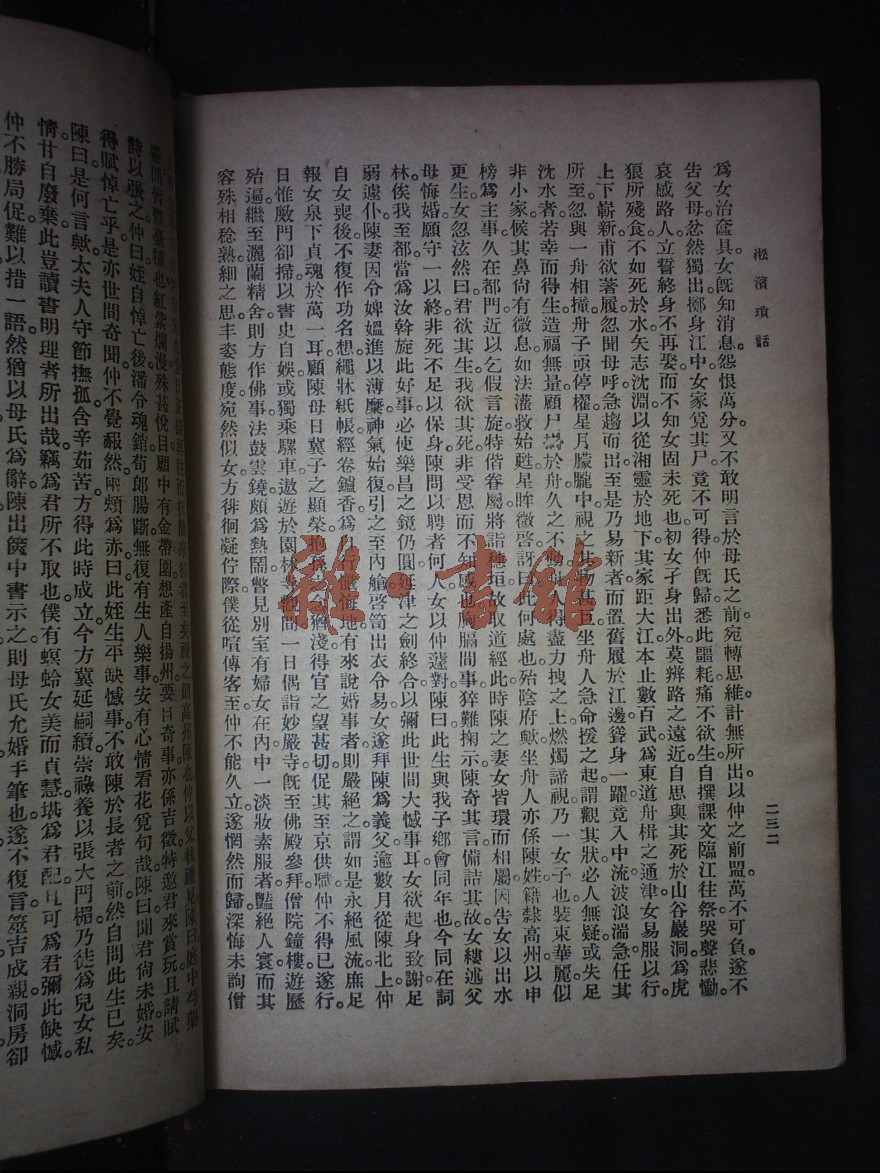 淞濱瑣話
二三二
爲女治奩具。女旣知消息。怨恨萬分。又不敢明言於母氏之前。宛轉思維。計無所出。以仲之前盟。萬不可負。遂不
告父母。忿然獨出。擲身江中。女家覓其尸。竟不可得。仲旣歸。悉此噩耗。痛不欲生。自撰誄文。臨江往祭。哭聲悲慟。
哀感路人。立誓終身不再娶。而不知女固未死也。初女孑身出外。莫辨路之遠近。自思與其死於山谷巖洞。爲虎
狼所殘食。不如死於水。矢志沈淵。以從湘靈於地下。其家距大江本止數百武。爲東道舟楫之通津。女易服以行。
上下嶄新。甫欲著履。忽聞母呼。急趨而出。至是乃易新者。而置舊履於江邊。聳身一躍。竟入中流。波浪湍急。任其
所至。忽與一舟相撞。舟子頭停櫂。星月朦朧中視之。其物甚巨。坐舟人急命援之起。謂觀其狀必人無疑。或失足
沈水者。若幸而得生。造福無量。顧尸 於舟久之不動。舟人得盡力拽之上。燃燭諦視。乃一女子也。裝束華麗。似
非小家。候其鼻。尙有微息。如法灌救始甦。星眸微啓。訝曰。此何處也。殆陰府歟。坐舟人亦係陳姓。籍隸高州。以申
榜爲主事。久在都門。近以乞假言旋。特偕眷屬將詣穗垣。故取道經此。時陳之妻女皆環而相屬。因告女以出水
更生。女忽泫然曰。君欲其生。我欲其死。非受恩而不知感也。胸膈間事。猝難掬示。陳奇其言。備詰其故。女縷述父
母悔婚。願守一以終。非死不足以保身。陳問以聘者何人。女以仲蘧對。陳曰。此生與我子鄉會同年也。今同在詞
林。俟我至都。當爲汝斡旋此好事。必使樂昌之鏡仍圓。延津之劍終合。以彌此世間大憾事耳。女欲起身致謝。足
弱遽仆。陳妻因令婢媼進以薄糜。神氣始復。引之至內艙。啓笥出衣令易。女遂拜陳爲義父。逾數月從陳北上。仲
自女喪後。不復作功名想。繩牀紙帳。經卷鑪香。爲 行懺悔地。有來說婚事者。則嚴絕之。謂如是永絕風流。庶足
報女泉下貞魂於萬一耳。顧陳母日冀子之顯榮。抱孫 猶淺。得官之望甚切。促其至京供職。仲不得已遂行。
日惟廠門卻掃。以書史自娛。或獨乘騾車。遨遊於園林寺觀間。一日偶詣妙嚴寺。旣至佛殿參拜。僧院鐘樓。遊歷
殆遍。繼至灑蘭精舍。則方作佛事。法鼓雲鐃。頗爲熱鬧。瞥見別室有婦女在內。中一淡妝素服者。豔絕人寰。而其
容殊相稔熟。細之思。丰姿態度。宛然似女。方徘徊凝佇際。僕從喧傳客至。仲不能久立。遂惘然而歸。深悔未詢僧
詩以張之。仲曰。姪自悼亡後。潘令魂銷。荀郎腸斷。無復有生人樂事。安有心情看花覓句哉。陳曰。聞君尙未婚。安
得賦悼亡乎。是亦世間奇聞。仲不覺覥然。兩頰爲赤。曰。此姪生平缺憾事。不敢陳於長者之前。然自問此生已矣。
陳曰。是何言歟。太夫人守節撫孤。含辛茹苦。方得此時成立。今方冀延嗣續。崇祿養。以張大門楣。乃徒爲兒女私
情。甘自廢棄。此豈讀書明理者所出哉。竊爲君所不取也。僕有螟蛉女。美而貞慧。堪爲君配。 可爲君彌此缺憾。
仲不勝局促。難以措一語。然猶以母氏爲辭。陳出篋中書示之。則母氏允婚手筆也。遂不復言。筮吉成親。洞房卻
雜·書館